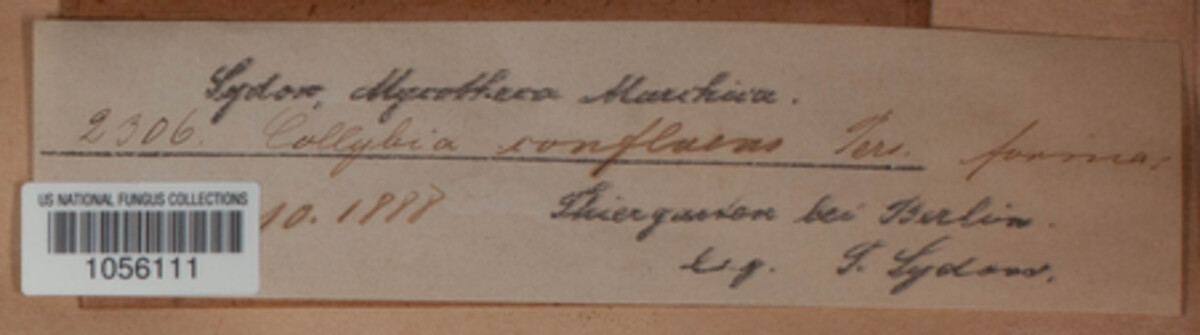 Sydow, Mycotheca Marchica.
2306. Collybia confluens Pers. forma.
10. 1888 Thiergarten bei Berlin.
leg. P. Sydow.
US NATIONAL FUNGUS COLLECTIONS
1056111